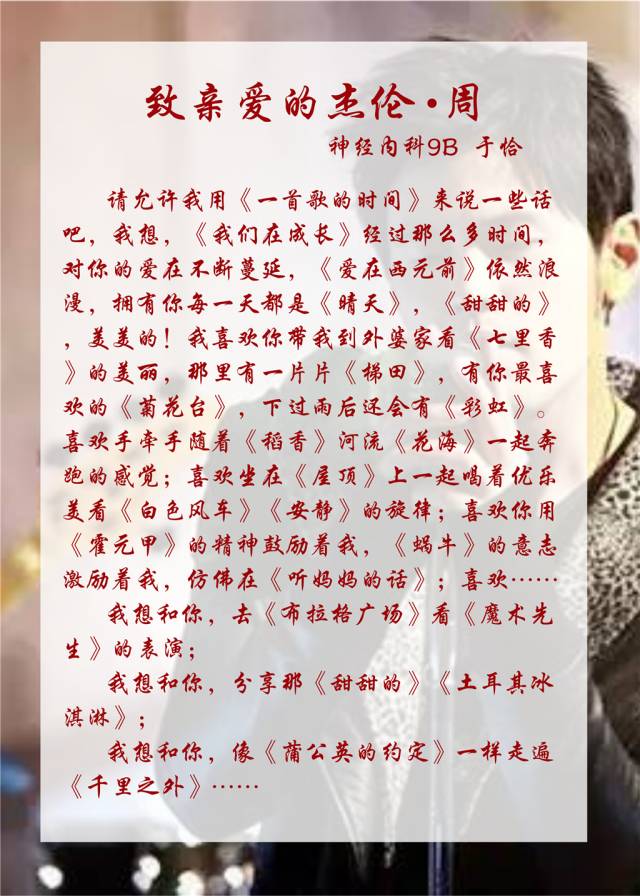 致亲爱的杰伦·周
神经内科9B 于恰
请允许我用《一首歌的时间》来说一些话
吧，我想，《我们在成长》经过那么多时间，
对你的爱在不断蔓延，《爱在西元前》依然浪
漫，拥有你每一天都是《晴天》，《甜甜的》
，美美的！我喜欢你带我到外婆家看《七里香
》的美丽，那里有一片片《梯田》，有你最喜
欢的《菊花台》，下过雨后还会有《彩虹》。
喜欢手牵手随着《稻香》河流《花海》一起奔
跑的感觉；喜欢坐在《屋顶》上一起喝着优乐
美看《白色风车》《安静》的旋律；喜欢你用
《霍元甲》的精神鼓励着我，《蜗牛》的意志
激励着我，仿佛在《听妈妈的话》；喜欢……
我想和你，去《布拉格广场》看《魔术先
生》的表演；
我想和你，分享那《甜甜的》《土耳其冰
淇淋》；
我想和你，像《蒲公英的约定》一样走遍
《千里之外》……